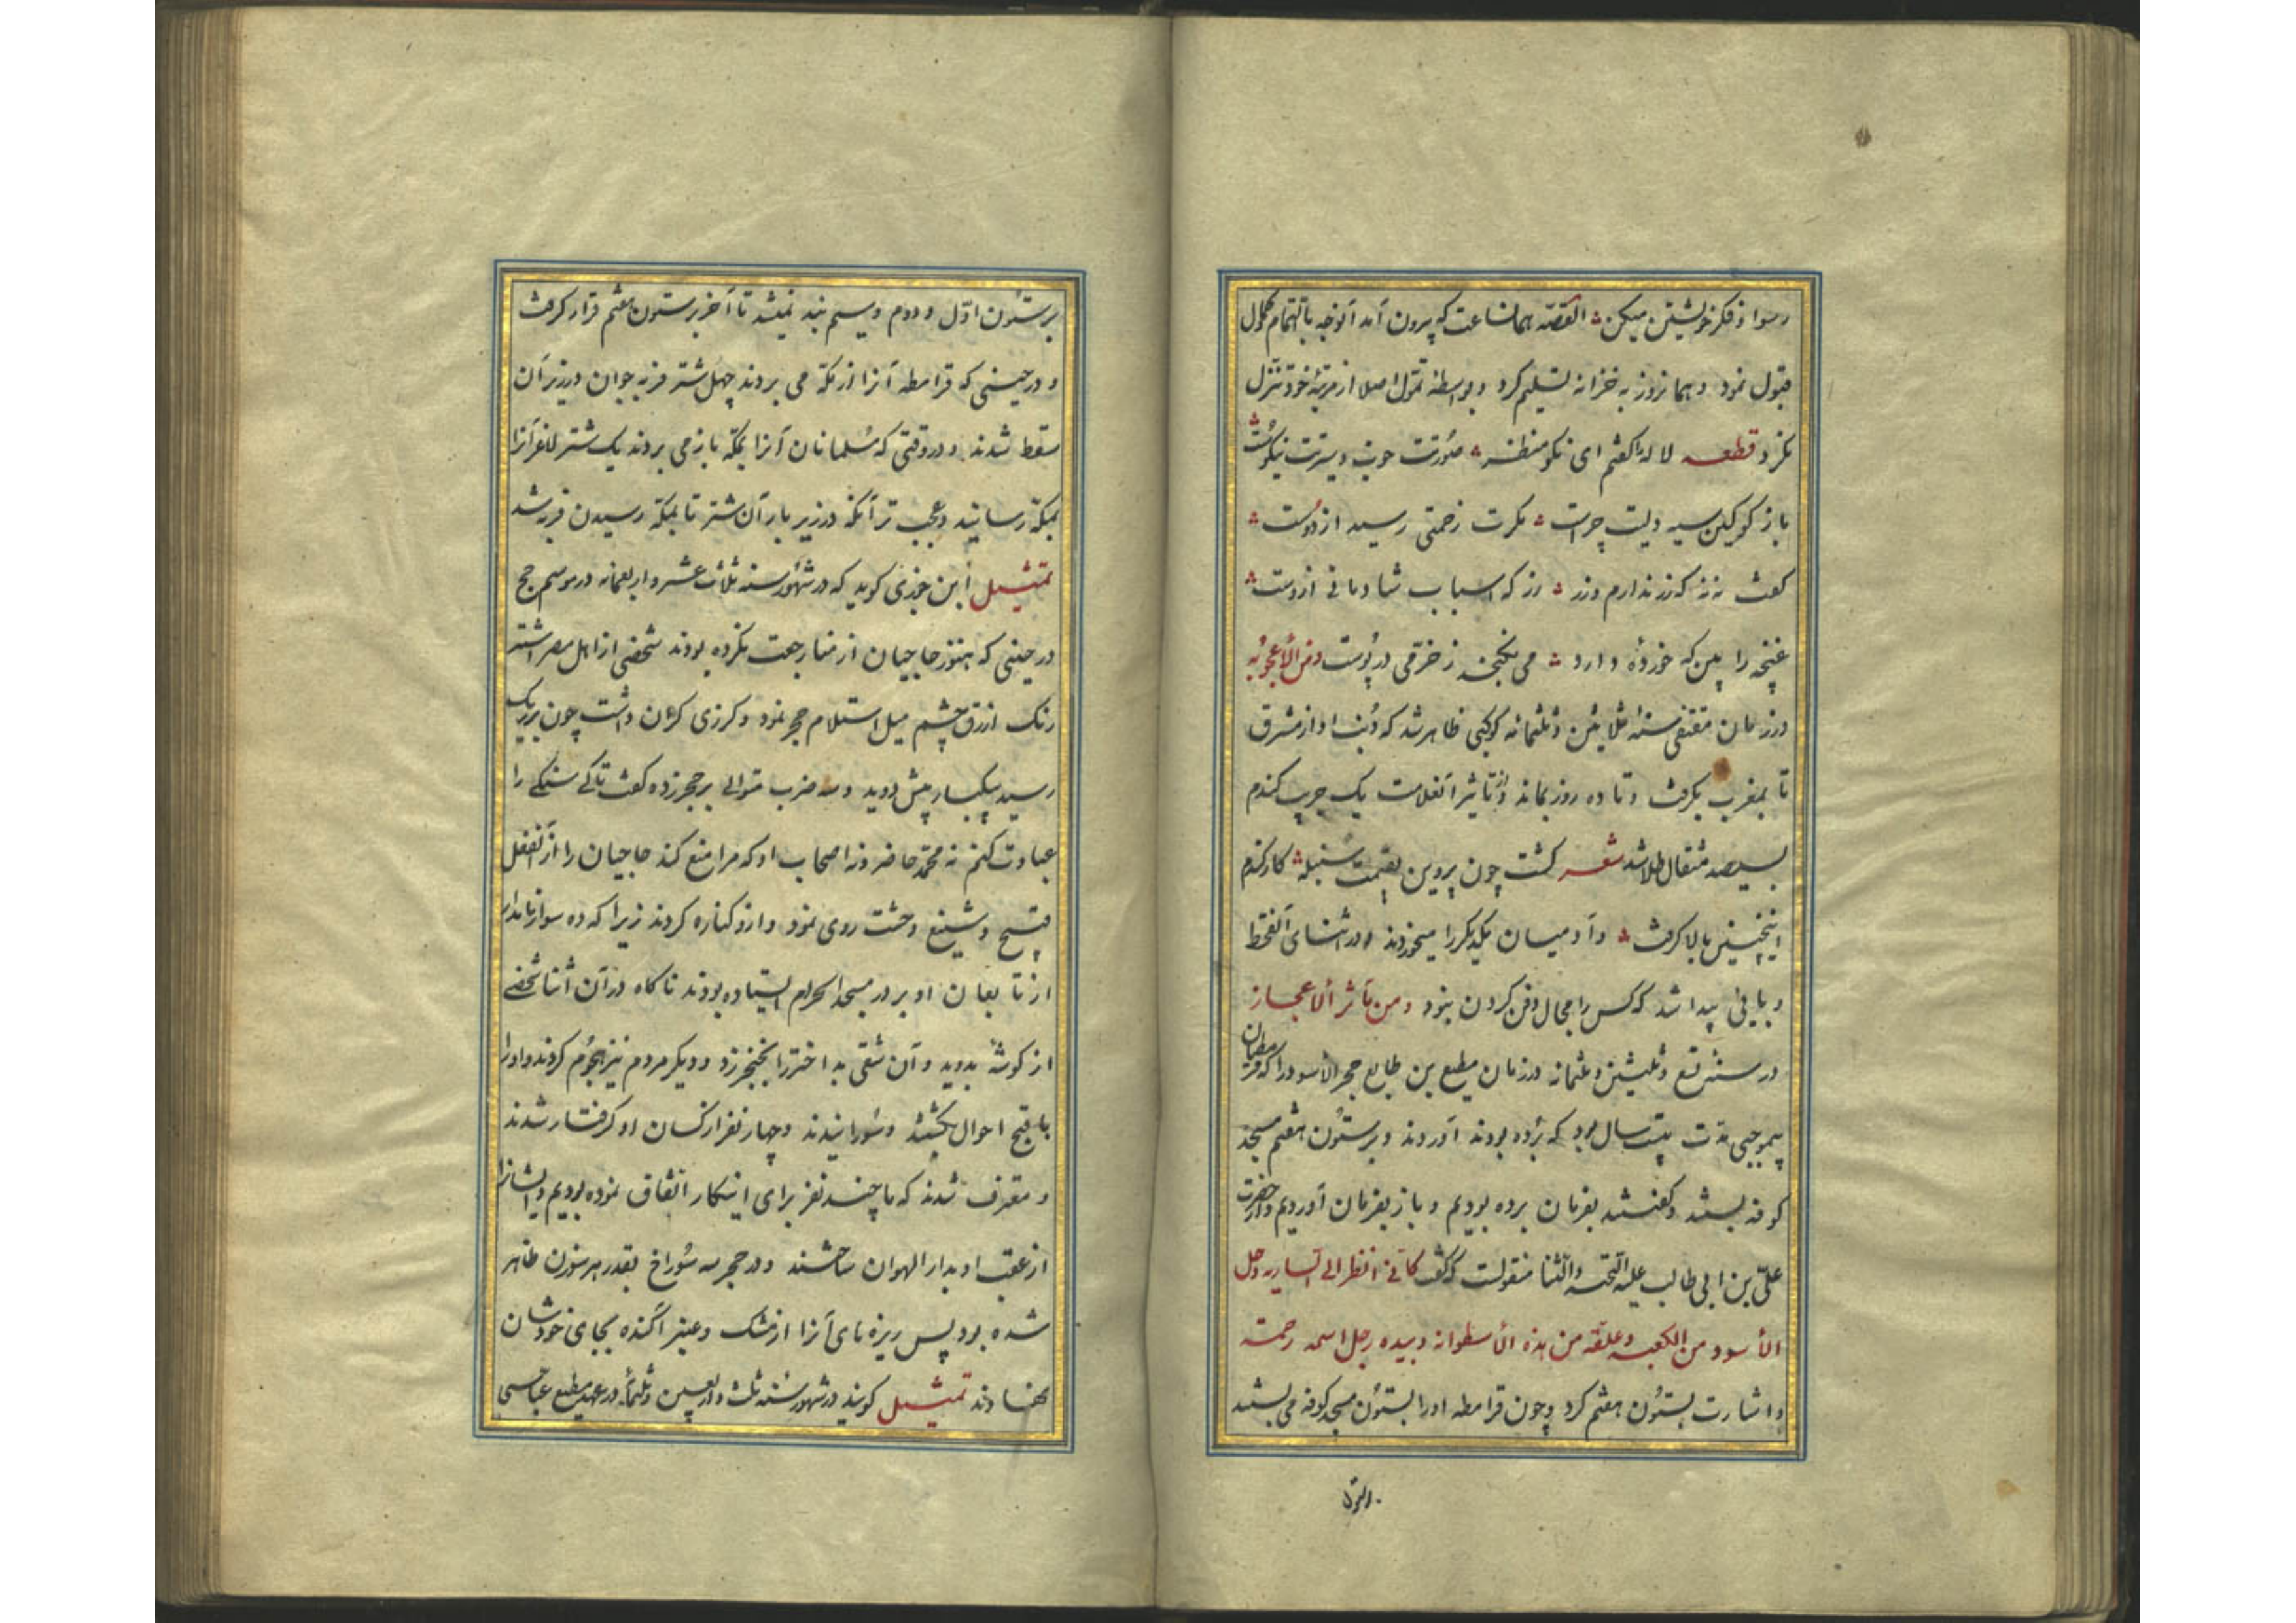 رسوا و فکر خویشتن میکن ؞ القصّه همان ساعت که بیرون آمد آنوجه بالتمام
قبول نمود و همانروز به خزانه تسلیم کرد و بواسطه تموّل اصلا از مرتبهٔ خود تنزل
نکرد قطعه لاله را کفتم ای نکو منظر ؞ صورتت خوب و سیرت نیکوست
باز کو کین سیه دلیت چراست ؞ مکرت زخمتی رسید از دوست ؞
کفت نه نه که زر ندارم و زر ؞ زر که اسباب شادمانی ازوست ؞
غنچه را بین که خوردهٔ دارد ؞ می نکنجد ز خرّمی در پوست و من الأعجوبه
در زمان متقی سنه ثلاثین و ثلثمائه کوکبی ظاهر شد که ذنب او از مشرق
تا بمغرب بکرفت و تا ده روز بماند و از تاثیر آنعلامت یک جریب کندم
بسیصد مثقال طلا شد شعر کشت چون پروین بقیمت سنبله ؞ کار کندم
اینچنین بالا کرفت ؞ و آدمیان یکدیکر را میخوردند و در اثنای آنقحط
و بایی پیدا شد که کس را مجال دفن کردن نبود و من مآثر الاعجاز
در سنه تسع و ثلثین و ثلثمائه در زمان مطیع بن طایع حجر الاسود را که قرمطیان
بیموجبی مدّت بیست سال بود که برده بودند آوردند و بر ستون هفتم مسجد
کوفه بستند و کفتند بفرمان برده بودیم و باز بفرمان آوردیم و از حضرت
علیّ بن ابی طالب علیه التحیه و الثنا منقولست که کفت کانی انظر الی الساریه و حل
الأسود من الکعبه و علقه من هذه الأسطوانه و بیده رجل اسمه رحمت
و اشارت بستون هفتم کرد و چون قرامطه او را بستون مسجد کوفه می بستند
بر ستون اوّل و دوم و سیم بند نمیشد تا آخر بر ستون هفتم قرار کرفت
و در حینی که قرامطه آنرا از مکّه می بردند چهل شتر فربه جوان در زیر آن
سقط شدند و در وقتی که مسلمانان آنرا بمکّه باز می بردند یک شتر لاغر آنرا
بمکّه رسانید و عجب تر آنکه در زیر بار آن شتر تا بمکّه رسیدن فربه شد
تمثیل ابن جوزی کوید که در شهور سنه ثلاث عشر و اربعمائه در موسم حج
در حینی که هنوز حاجیان از منا رجعت نکرده بودند شخصی از اهل مصر اشقر
رنک ازرق چشم میل استلام حجر نمود و کرزی کران داشت چون نزدیک
رسید بیکبار پیش دوید و سه ضرب متوالی بر حجر زده کفت تا کی سنکی را
عبادت کنم نه محمّد حاضر و نه اصحاب او که مرا منع کند حاجیان را از آنفعل
قبیح و شنیع وحشت روی نمود و ازو کناره کردند زیرا که ده سوار نامدار
از تابعان او بر در مسجد الحرام ایستاده بودند ناکاه در آن اثنا شخصی
از کوشهٔ بدوید و آن شقی بد اختر را بخنجر زد و دیکر مردم نیز هجوم کردند و او را
باقبح احوال بکشتند و سورانیدند و چهار نفر از کسان او کرفتار شدند
و معترف شدند که ما چند نفر برای اینکار اتفاق نموده بودیم و ایشانرا
از عقب او بدار الهوان ساختند و در حجر سه سوراخ بقدر هر سوزن ظاهر
شده بود پس ریزه های آنرا از مشک و عنبر آکنده بجای خودشان
نهادند تمثیل کویند در شهور سنه ثلث و اربعین و ثلثمائه در عهد مطیع عباسی
بر ستون